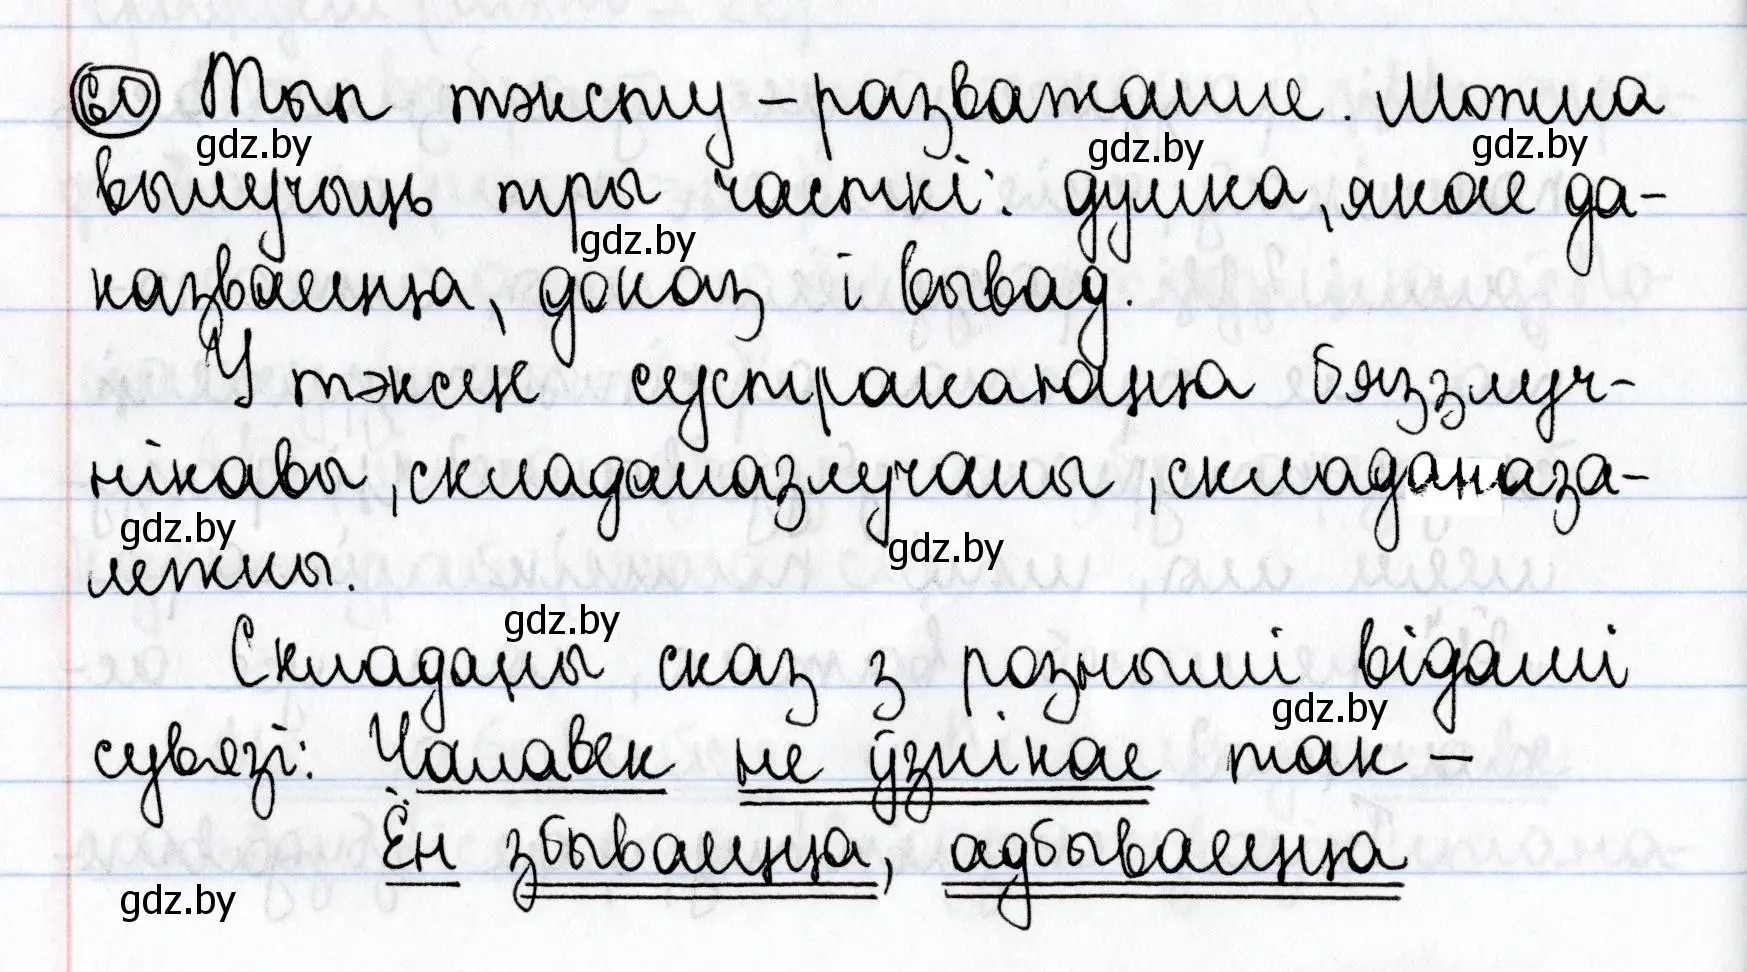 60 Тып тэксту – разважанне. Можна
gdz.by gdz.by gdz.by
вылучыць тры часткі: думка, якае да-
gdz.by
казваецца, доказ і вывад.
У тэксце сустракаюцца бяззлуч-
нікавы, складаназлучаны, складаназа-
gdz.by gdz.by
лежны.
gdz.by
Складаны сказ з рознымі відамі
gdz.by
сувязі: Чалавек не ўзнікае так –
Ён збываецца, адбываецца
gdz.by